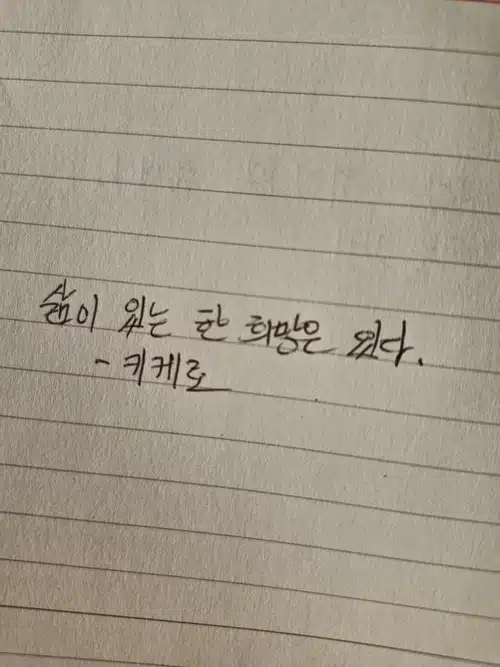 삶이 있는 한 희망은 있다.
- 키케로